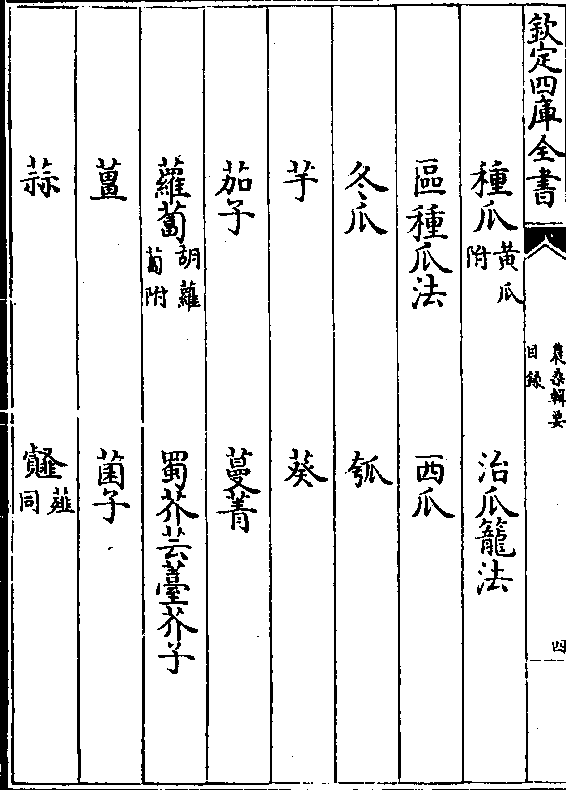 欽定四庫全書
農桑輯要
目錄
四
種瓜黃瓜附
治瓜籠法
區種瓜法
西瓜
冬瓜
瓠
芋
葵
茄子
蔓菁
蘿蔔胡蘿蔔附
蜀芥芸薹芥子
薑
菌子
蒜
薤同